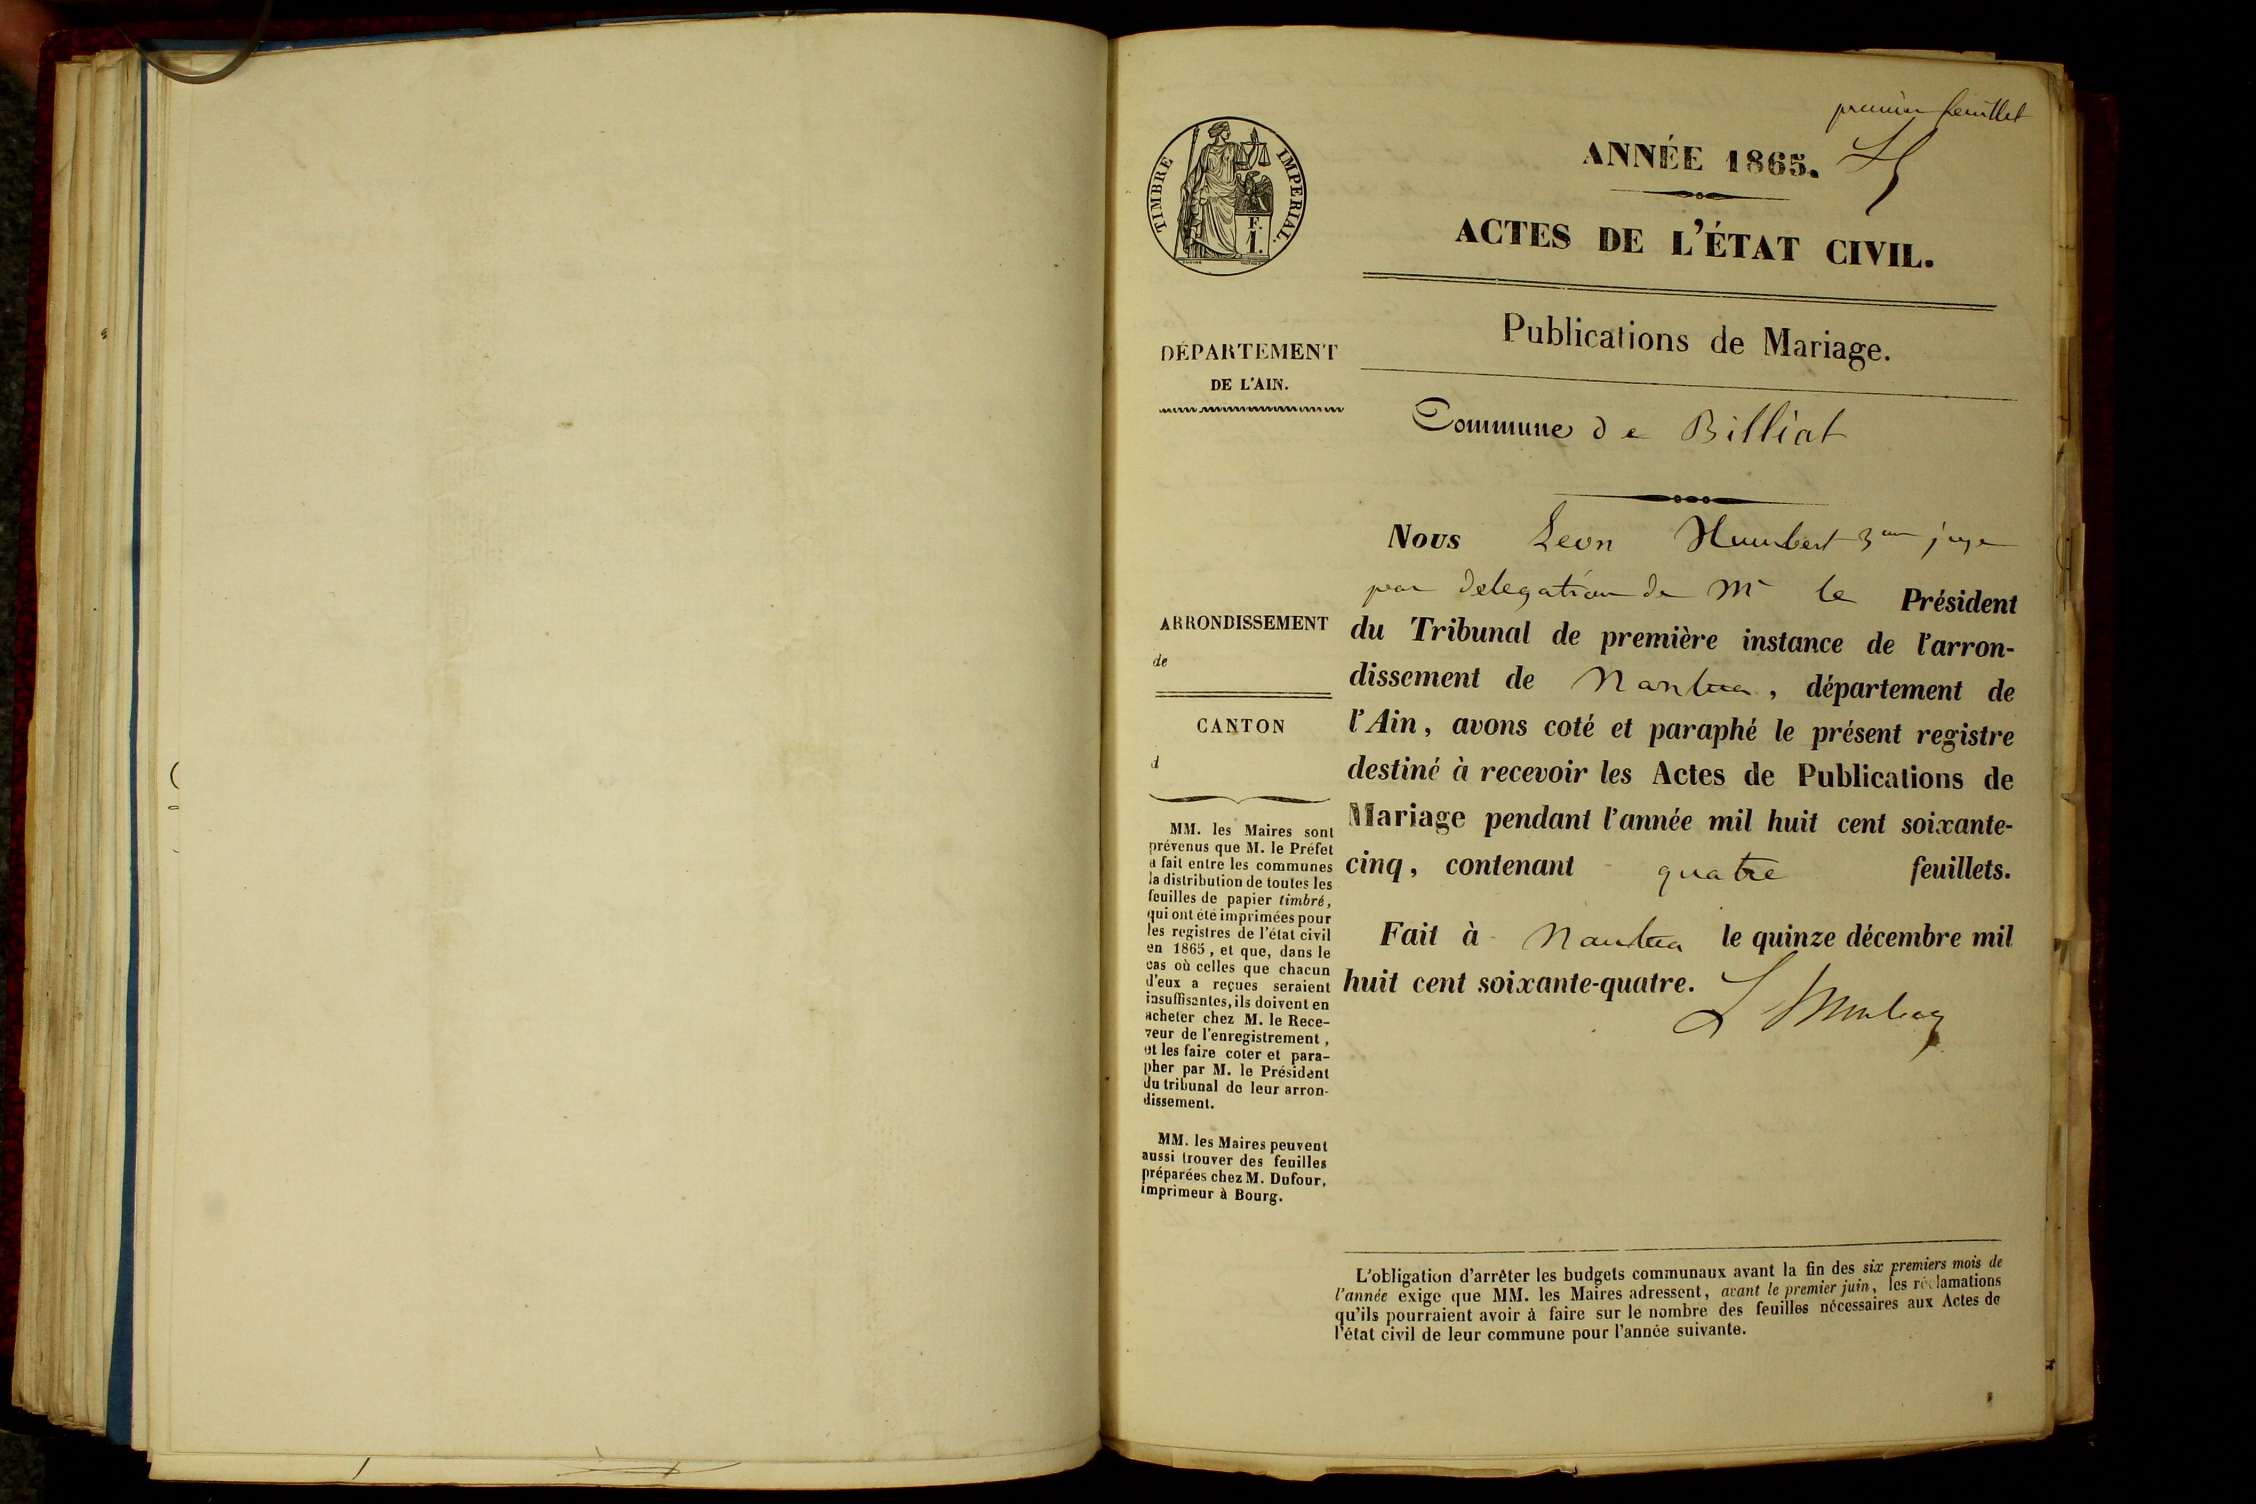 premier feuillet
TIMBRE IMPERIAL.
F.
1.
ANNÉE 1865.
ACTES DE L'ÉTAT CIVIL.
Publications de Mariage.
DÉPARTEMENT
DE L'AIN.
Commune de Billiat
Nous Leon Humbert 3me juge
par delegation de Mr le Président
du Tribunal de première instance de l'arron-
dissement de Nantua, département de
l'Ain, avons coté et paraphé le présent registre
destiné à recevoir les Actes de Publications de
Mariage pendant l'année mil huit cent soixante-
cinq, contenant quatre feuillets.
Fait à Nantua le quinze décembre mil
huit cent soixante-quatre.
ARRONDISSEMENT
de
CANTON
d
MM. les Maires sont
prévenus que M. le Préfet
a fait entre les communes
la distribution de toutes les
feuilles de papier timbré,
qui ont été imprimées pour
les registres de l'état civil
en 1865, et que, dans le
cas où celles que chacun
d'eux a reçues seraient
insuffisantes, ils doivent en
acheter chez M. le Rece-
veur de l'enregistrement,
et les faire coter et para-
pher par M. le Président
du tribunal de leur arron-
dissement.
MM. les Maires peuvent
aussi trouver des feuilles
préparées chez M. Dufour,
imprimeur à Bourg.
L'obligation d'arrêter les budgets communaux avant la fin des six premiers mois de
l'année exige que MM. les Maires adressent, avant le premier juin, les réclamations
qu'ils pourraient avoir à faire sur le nombre des feuilles nécessaires aux Actes de
l'état civil de leur commune pour l'année suivante.